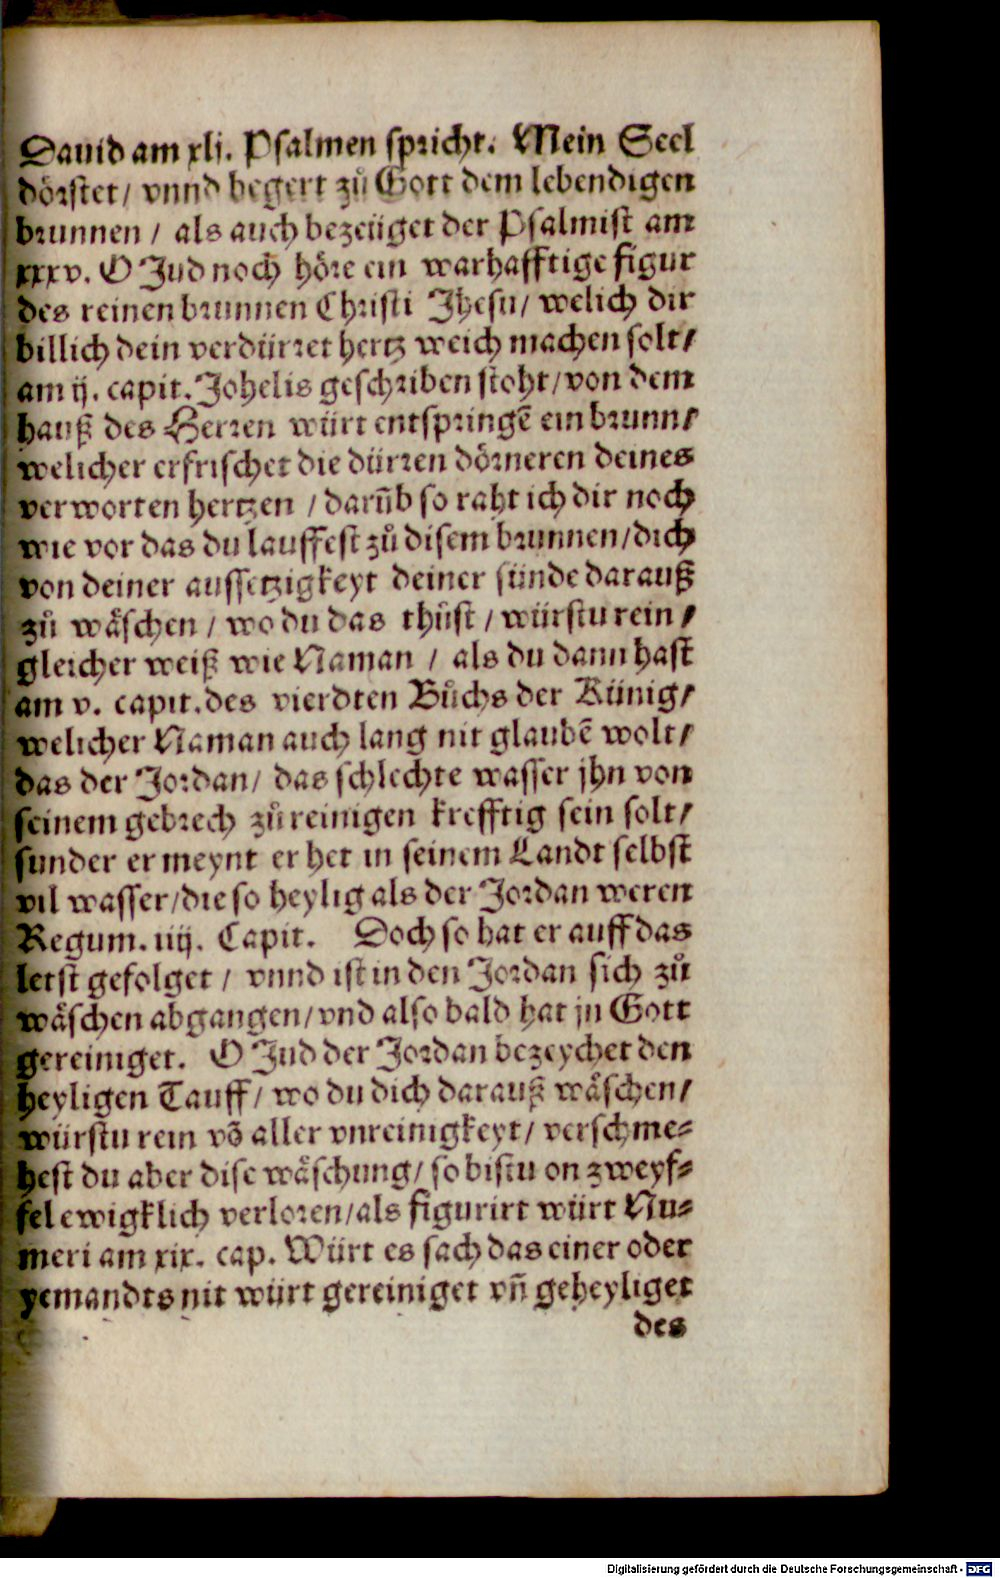 Dauid am xlj. Psalmen spricht. Mein Seel
dörstet / vnnd begert zů Gott dem lebendigen
brunnen / als auch bezeüget der Psalmist am
xxxv. O Jud noch höre ein warhafftige figur
des reinen brunnen Christi Jhesu / welich dir
billich dein verdürret hertz weich machen solt /
am ij. capit. Johelis geschriben stoht / von dem
hauß des Herren würt entspringẽ ein brunn /
welicher erfrischet die dürren dörneren deines
verworten hertzen / darũb so raht ich dir noch
wie vor das du lauffest zů disem brunnen / dich
von deiner aussetzigkeyt deiner sünde darauß
zů wäschen / wo du das thůst / würstu rein /
gleicher weiß wie Naman / als du dann hast
am v. capit. des vierdten Bůchs der Künig /
welicher Naman auch lang nit glaubẽ wolt /
das der Jordan / das schlechte wasser jhn von
seinem gebrech zů reinigen krefftig sein solt /
sunder er meynt er het in seinem Landt selbst
vil wasser / die so heylig als der Jordan weren
Regum. iiij. Capit. Doch so hat er auff das
letst gefolget / vnnd ist in den Jordan sich zů
wäschen abgangen / vnd also bald hat jn Gott
gereiniget. O Jud der Jordan bezeychet den
heyligen Tauff / wo du dich darauß wäschen /
würstu rein võ aller vnreinigkeyt / verschme-
hest du aber dise wäschung / so bistu on zweyf-
fel ewigklich verloren / als figurirt würt Nu-
meri am xix. cap. Würt es sach das einer oder
yemandts nit würt gereiniget vñ geheyliget
des
Digitalisierung gefördert durch die Deutsche Forschungsgemeinschaft - DFG